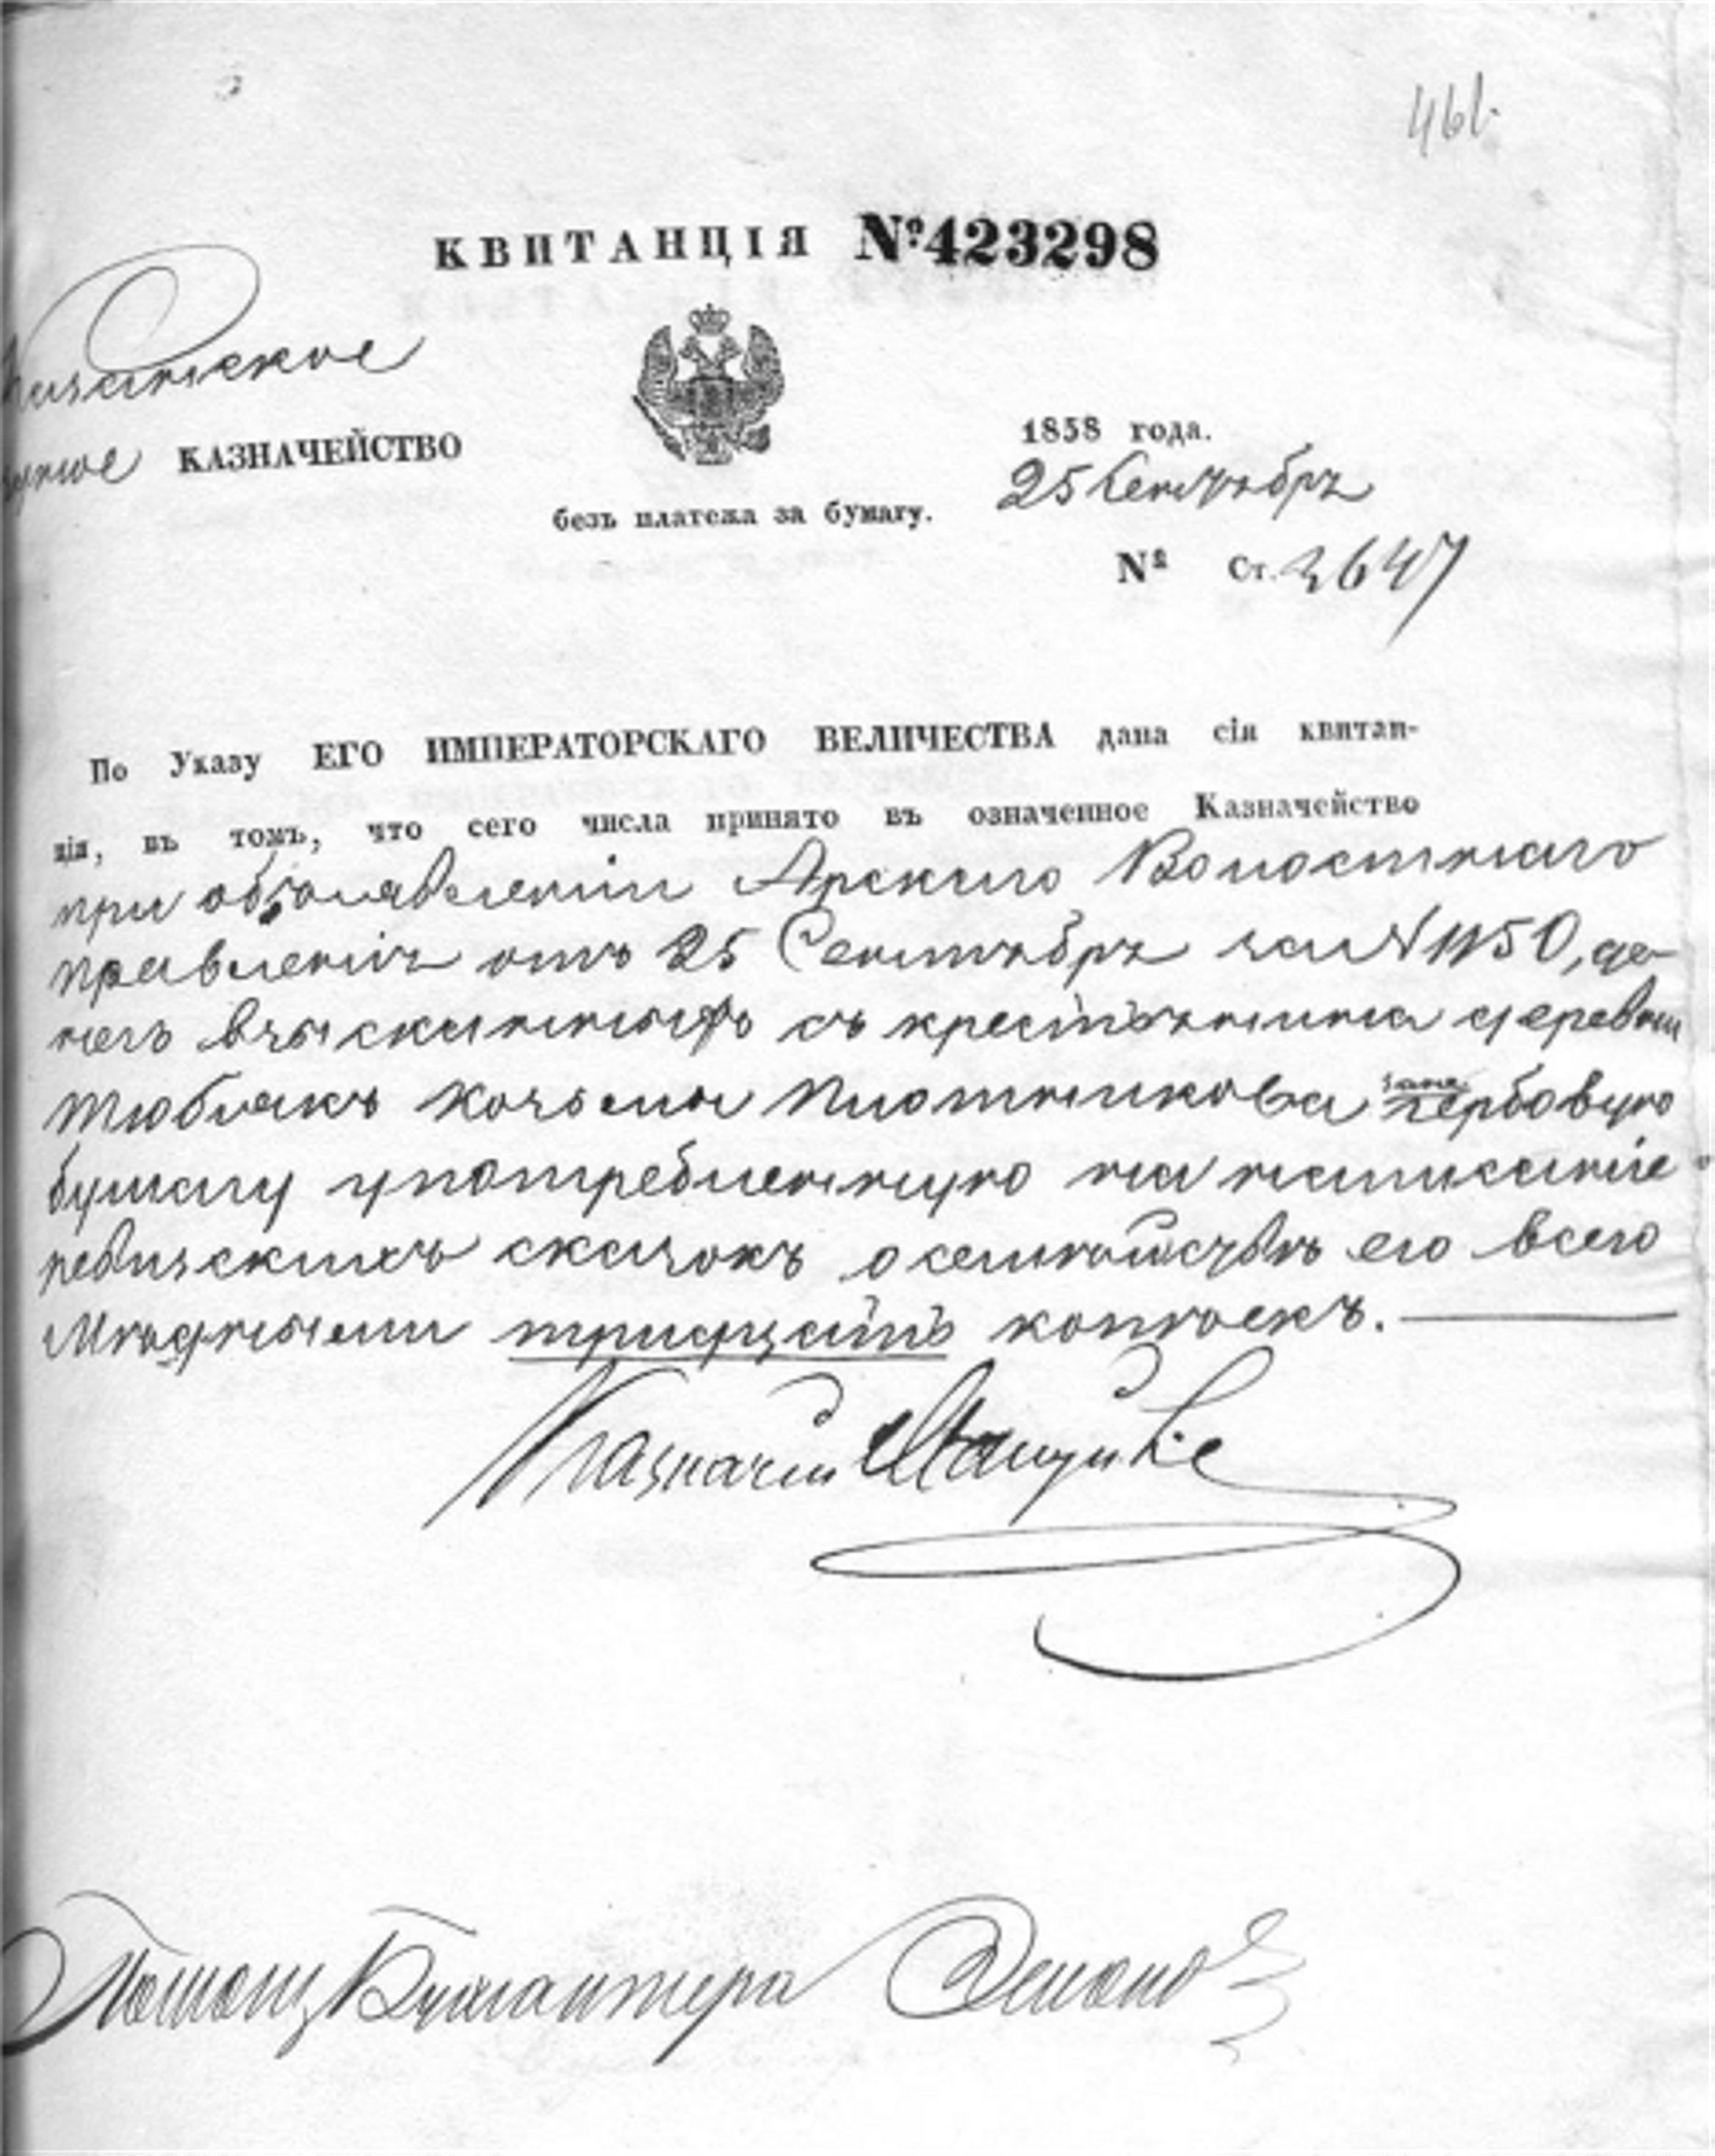 461.
КВИТАНЦІЯ №423298
Казанское
КАЗНАЧЕЙСТВО
1858 года.
25 Сентября
безъ платежа за бумагу.
№ Ст. 3647
По Указу ЕГО ИМПЕРАТОРСКАГО ВЕЛИЧЕСТВА дана сія квитан-
ція, въ томъ, что сего числа принято въ означенное Казначейство
при объявленіи Арскаго Волостнаго
правленія отъ 25 Сентября за № 1150, де-
негъ взысканныхъ съ крестьянина деревни
Тюбякъ Козьмы Плотникова за гербовую
бумагу употребленную на написаніе
ревизскихъ сказокъ о семействѣ его всего
Мѣдными тридцать копѣекъ.
Казначей
Помощ Бухгалтера